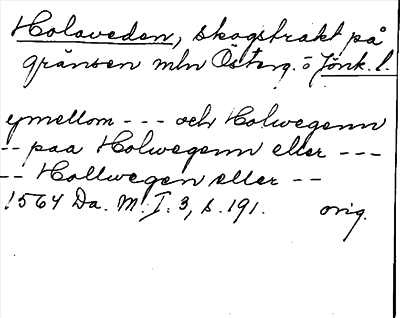 Holaveden, skogstrakt på
gränsen mln Österg. o Jönk. l.
ymellom - - - och Holwegenn
-- paa Holwegenn eller - - -
-- Hollwegen eller - -
1564 Da. M. I. 3, s. 191. orig.